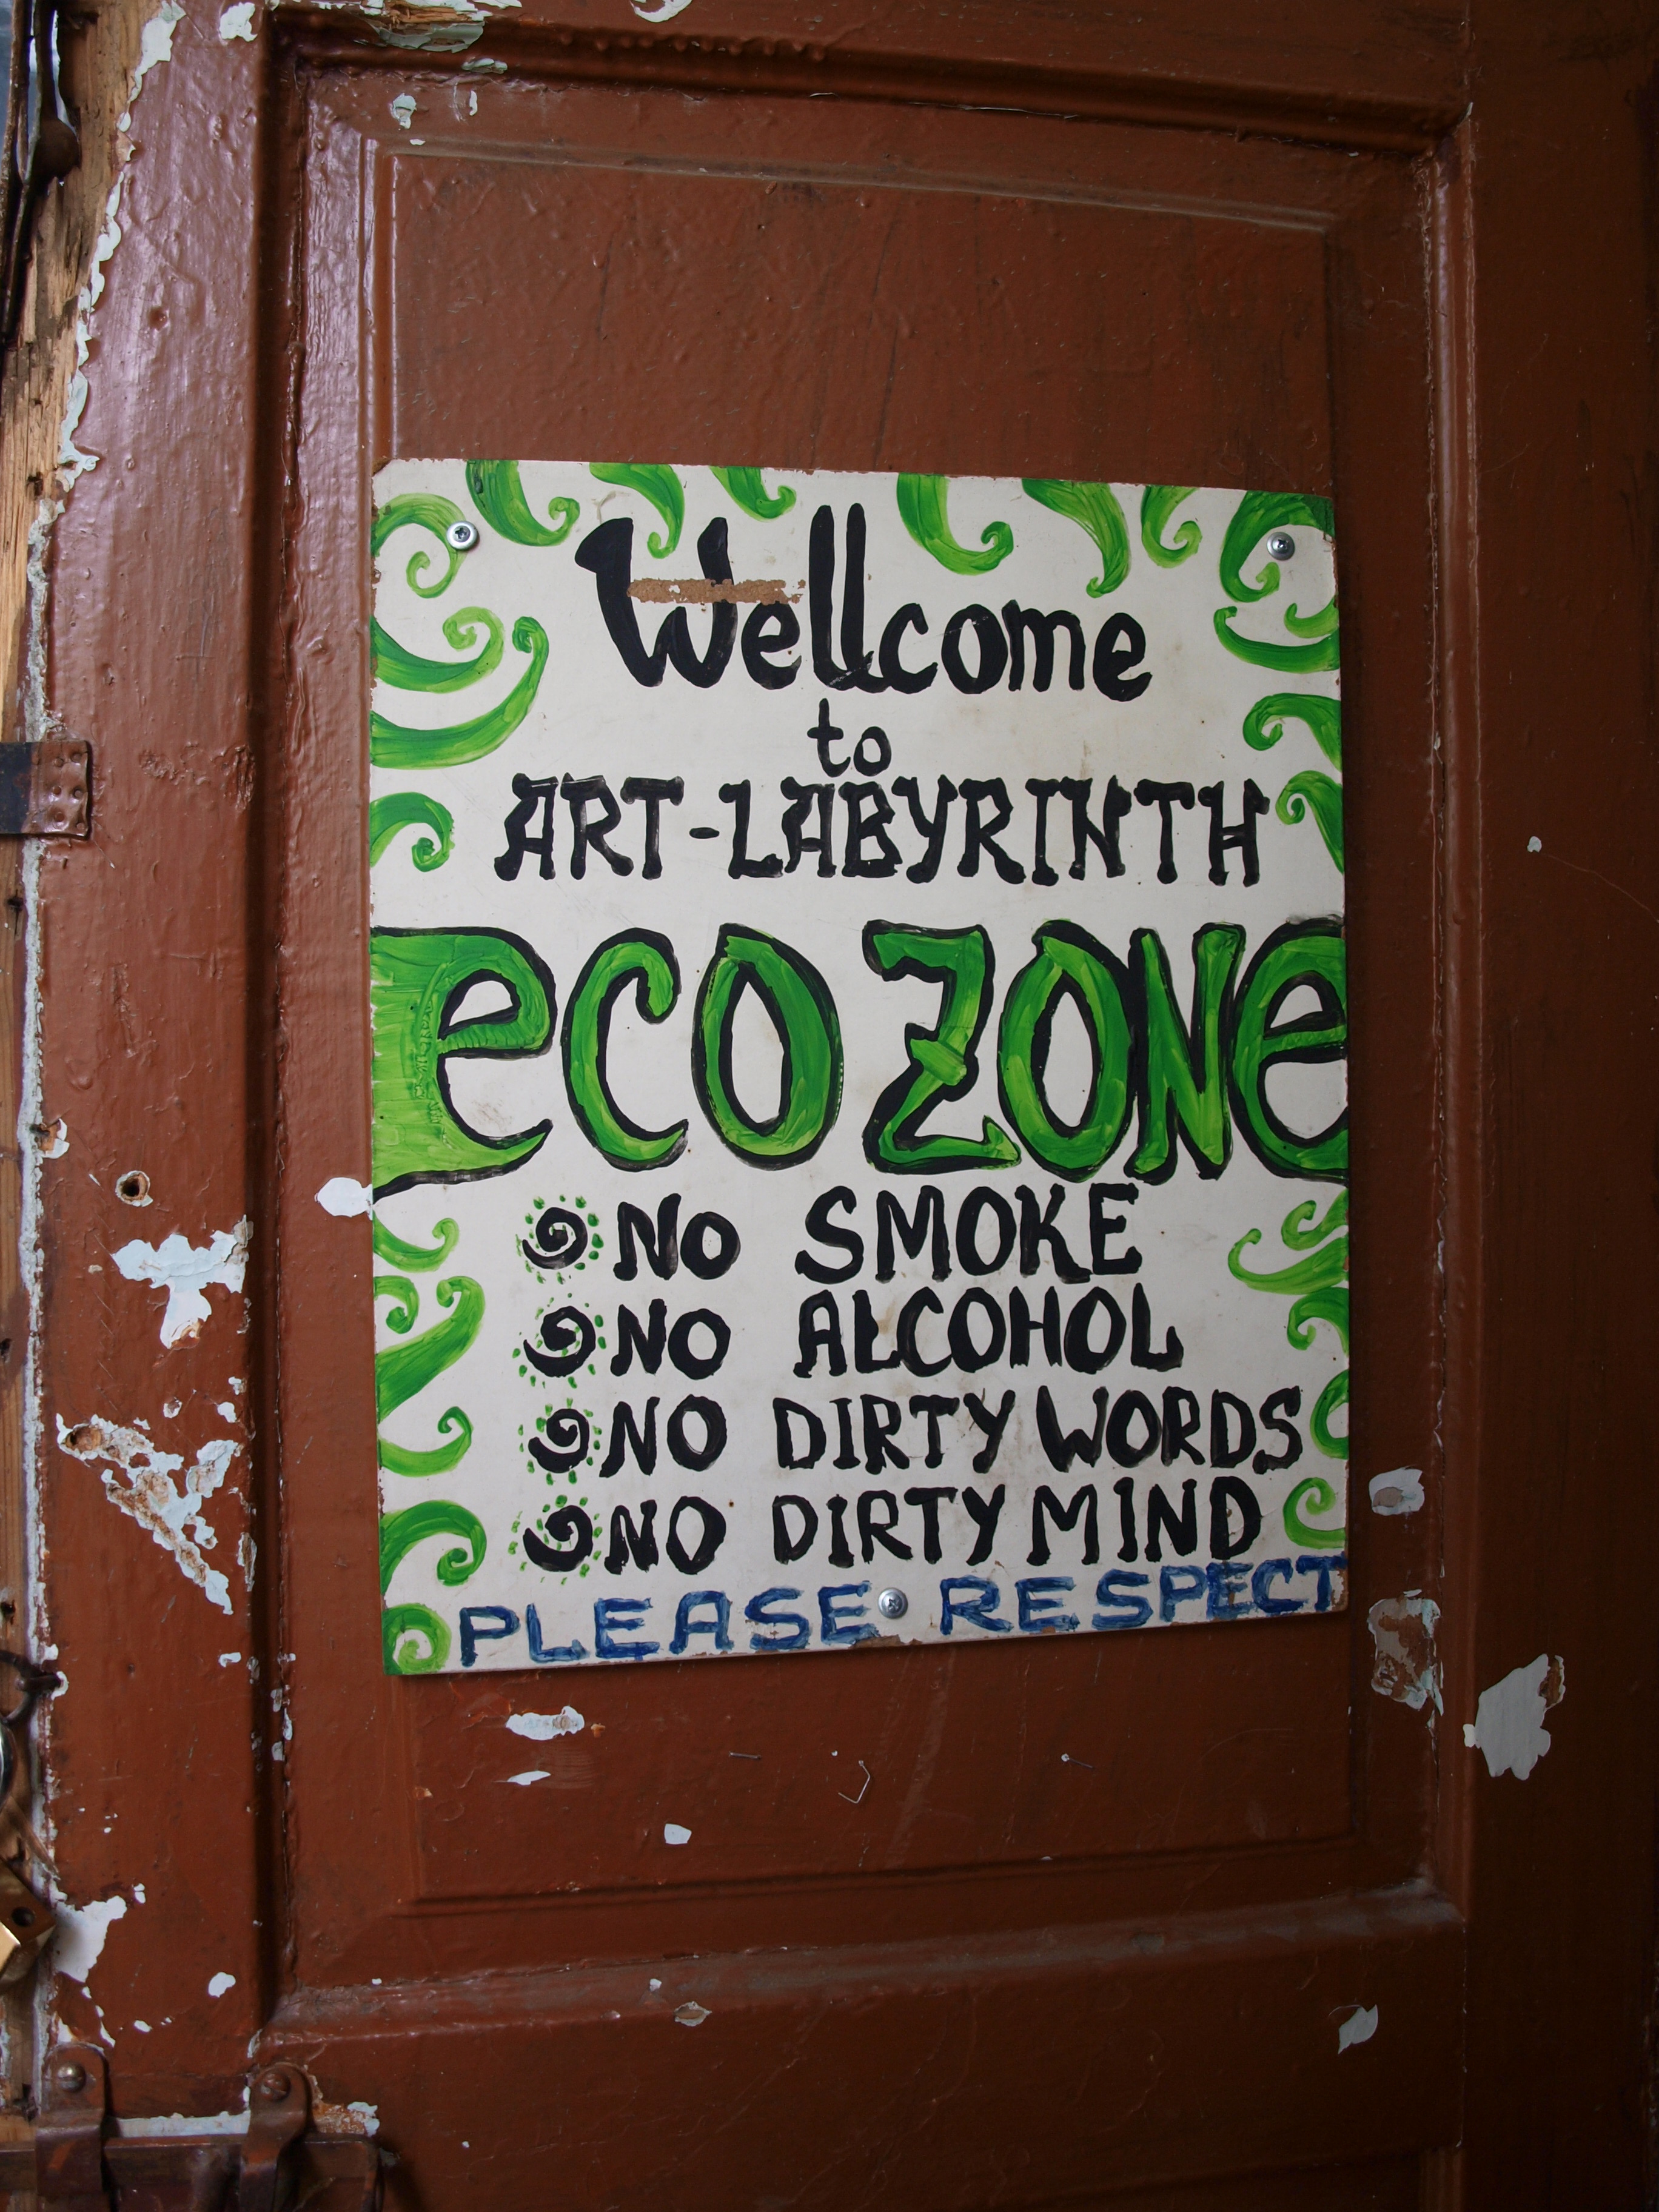 Wellcome
to
ART-LABYRINTH
eCO ZONe
NO SMOKE
NO ALCOHOL
NO DIRTY WORDS
NO DIRTY MIND
PLEASE RESPECT